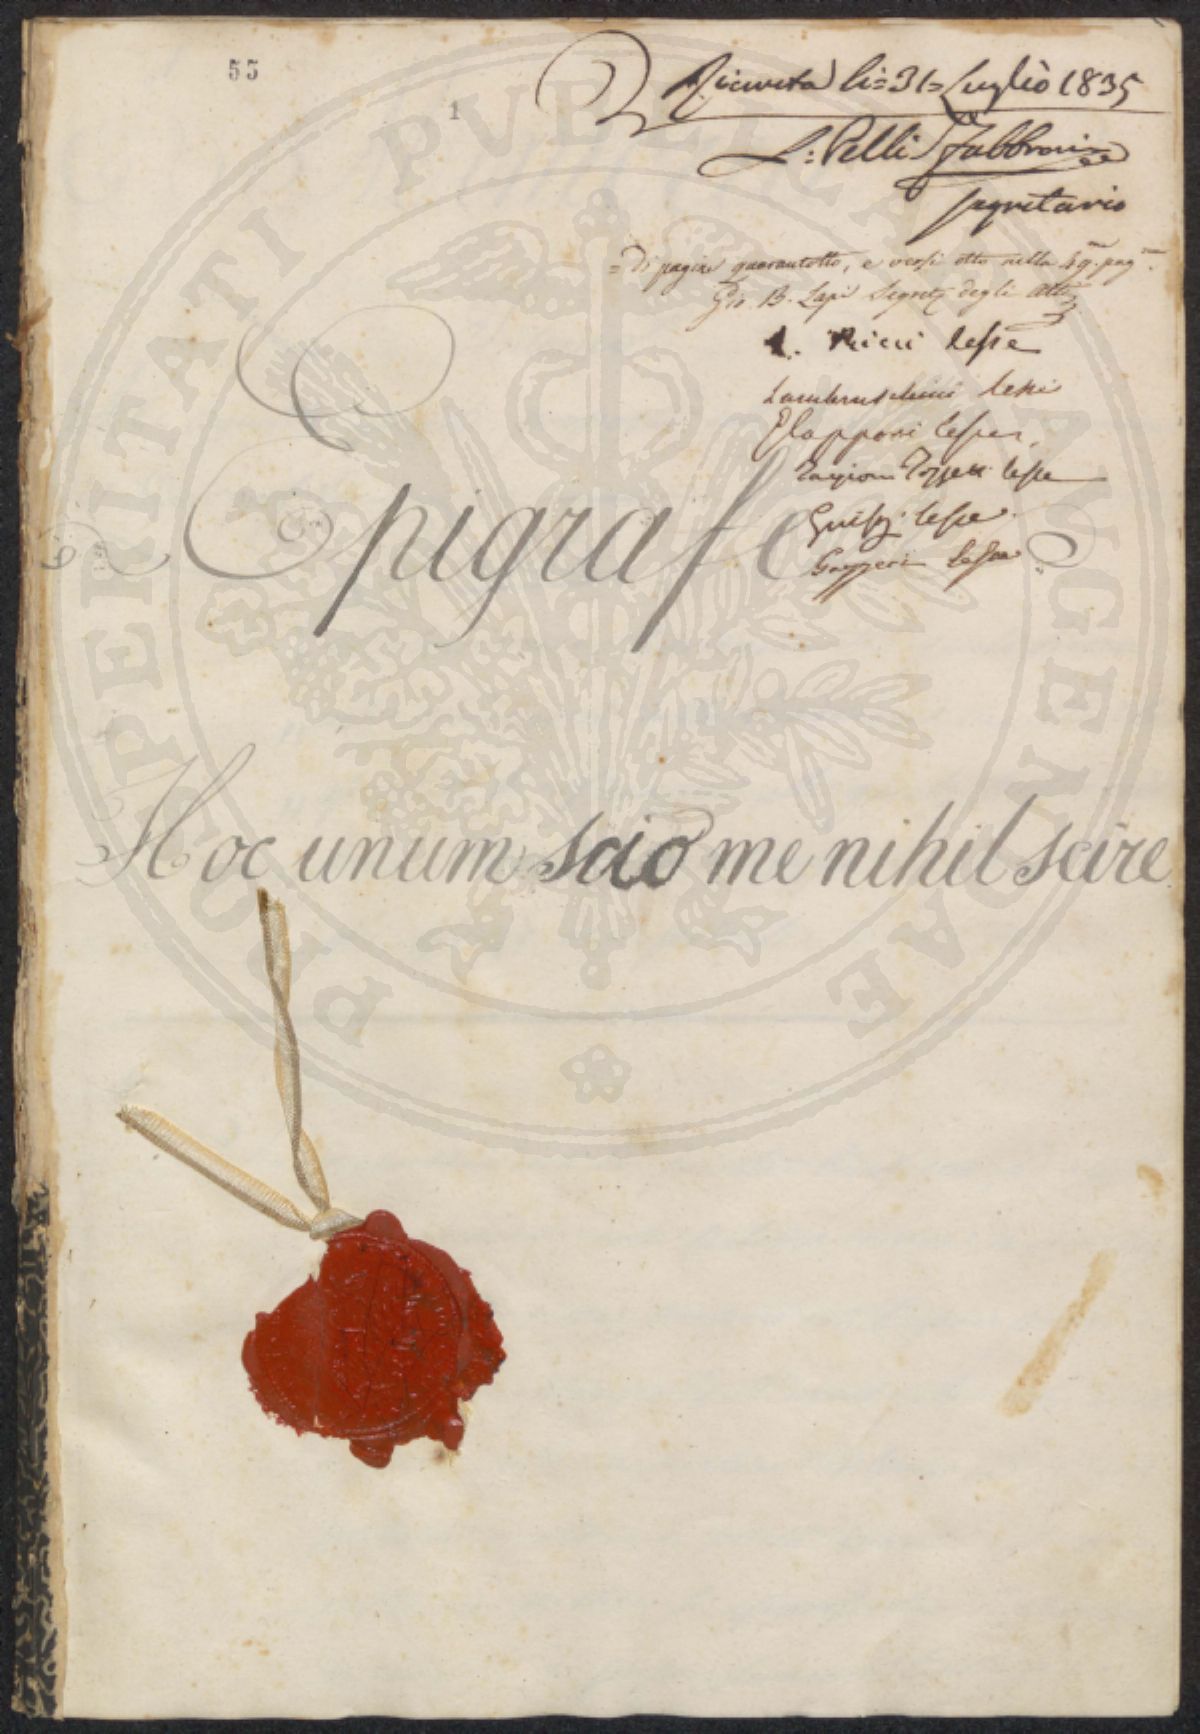 55
1
Ricevuta li = 31 = Luglio 1835
L: Pelli Fabbroni
segretario
= Di pagine quarantotto, e versi otto nella 49. pag.
Gio. B. Lapi Segret. degli Atti
L. Ricci lesse
Lambruschini lesse
Lapponi lesse
Targioni Tozzetti lesse
lesse
Gazzeri lesse
Epigrafe
Hoc unum scio me nihil scire
PROSPERITATI PVBLICAE AVGENDAE